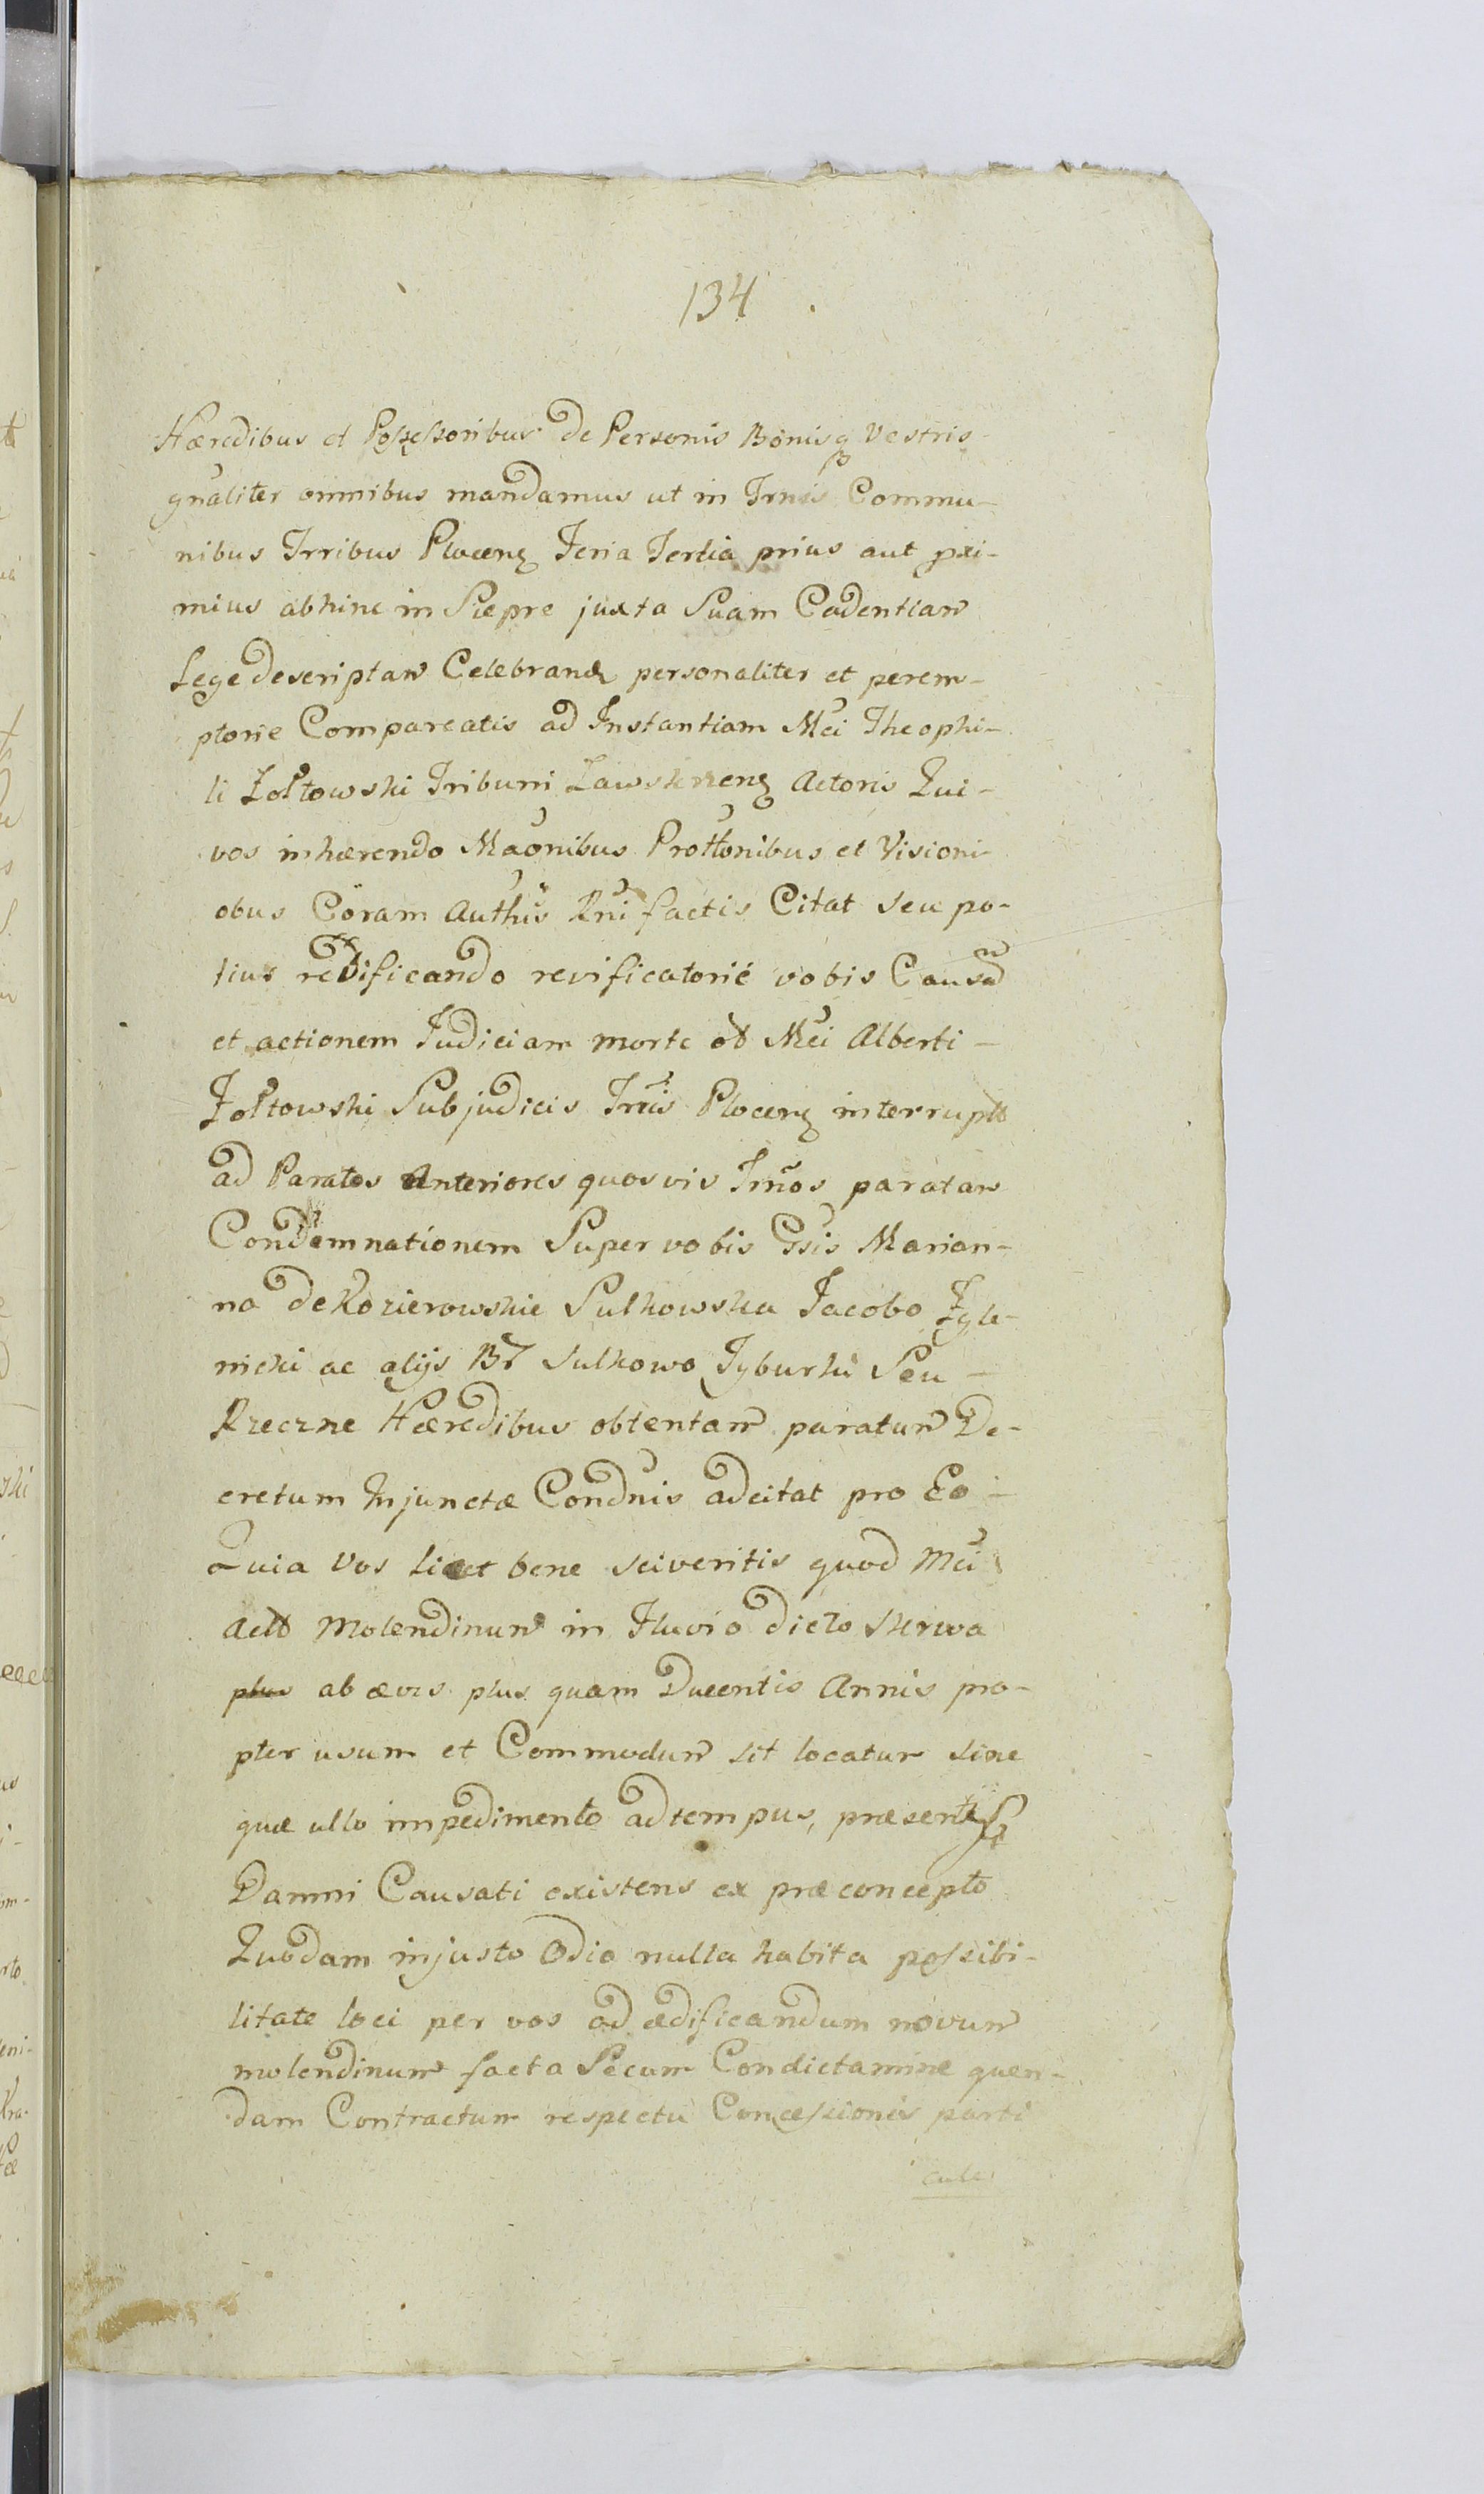 134
Hæredibus et Possessoribus de Personis Bonisq Vestris
gnaliter omnibus mandamus ut in Trnis Commu-
nibus Trribus Plocens Feria Tertia prius aut pxi-
mius abhinc in Siepre juxta Suam Cadentiam
Lege descriptam Celebrand personaliter et perem-
ptorie Compareatis ad Instantiam Mci Theophi-
li Zołtowski Tribuni Zawskrzens Actoris Qui-
vos inhærendo Maonibus Prottonibus et Visioni
obus Coram Authis Rni factis Citat seu po-
tius redificando revificatorié vobis Causam
et actionem Judiciam morte ol Mci Alberti
Zołtowski Subjudicis Trris Plocens interrupta
ad Paratos Anteriores quosvis Trnos paratam
Condemnationem Super vobis Gsis Marian-
na de Kozierowskie Sulkowska Jacobo Zgle-
nicki ac alijs Br Sulkowo Tyburki Seu
Rzeczne Hæredibus obtentam paratum De-
cretum Injunctæ Condnis adcitat pro Eo
Quia Vos licet bene sciveritis quod Mci
Acto Molendinum in Fluvio dicto Skrwa
plus ab ævis plus quam Ducentis Annis pro-
pter usum et Commodum sit locatum sine
quæ ullo impedimento ad tempus, præsens
Damni Causati existens ex præconcepto
Quodam injusto Odio nulla habita possibi-
litate loci per vos ad ædificandum novum
molendinum facta Secum Condictamine quen-
dam Contractum respectu Concessionis parti
culæ